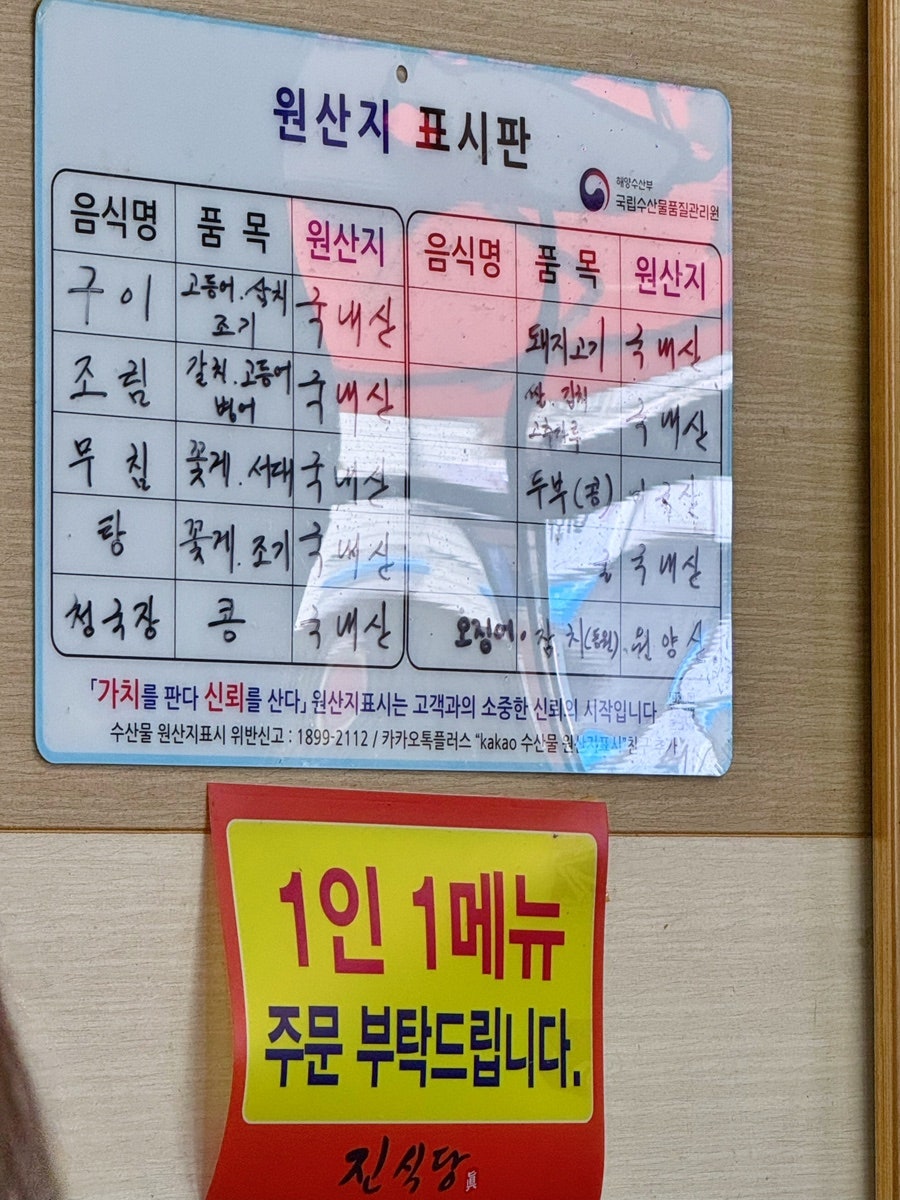 원산지 표시판
해양수산부
국립수산물품질관리원
음식명 품 목 원산지
구 이 고등어. 삼치 국내산
조기
조 림 갈치. 고등어 국내산
병어
무 침 꽃게. 서대 국내산
탕 꽃게. 조기 국내산
청국장 콩 국내산
음식명 품 목 원산지
돼지고기 국내산
쌀. 김치 국내산
고추가루
두부(콩)
국내산
오징어. 참치(동원). 원양산
「가치를 판다 신뢰를 산다」 원산지표시는 고객과의 소중한 신뢰의 시작입니다
수산물 원산지표시 위반신고 : 1899-2112 / 카카오톡플러스 “kakao 수산물 원산지표시”친구추가
1인 1메뉴
주문 부탁드립니다.
진식당
眞